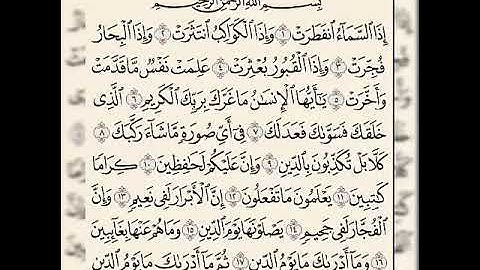 بِسْمِ اللَّهِ الرَّحْمَٰنِ الرَّحِيمِ
إِذَا السَّمَاءُ انفَطَرَتْ ١ وَإِذَا الْكَوَاكِبُ انتَثَرَتْ ٢ وَإِذَا الْبِحَارُ
فُجِّرَتْ ٣ وَإِذَا الْقُبُورُ بُعْثِرَتْ ٤ عَلِمَتْ نَفْسٌ مَّا قَدَّمَتْ
وَأَخَّرَتْ ٥ يَا أَيُّهَا الْإِنسَانُ مَا غَرَّكَ بِرَبِّكَ الْكَرِيمِ ٦ الَّذِي
خَلَقَكَ فَسَوَّاكَ فَعَدَلَكَ ٧ فِي أَيِّ صُورَةٍ مَّا شَاءَ رَكَّبَكَ ٨
كَلَّا بَلْ تُكَذِّبُونَ بِالدِّينِ ٩ وَإِنَّ عَلَيْكُمْ لَحَافِظِينَ ١٠ كِرَامًا
كَاتِبِينَ ١١ يَعْلَمُونَ مَا تَفْعَلُونَ ١٢ إِنَّ الْأَبْرَارَ لَفِي نَعِيمٍ ١٣ وَإِنَّ
الْفُجَّارَ لَفِي جَحِيمٍ ١٤ يَصْلَوْنَهَا يَوْمَ الدِّينِ ١٥ وَمَا هُمْ عَنْهَا بِغَائِبِينَ
١٦ وَمَا أَدْرَاكَ مَا يَوْمُ الدِّينِ ١٧ ثُمَّ مَا أَدْرَاكَ مَا يَوْمُ الدِّينِ